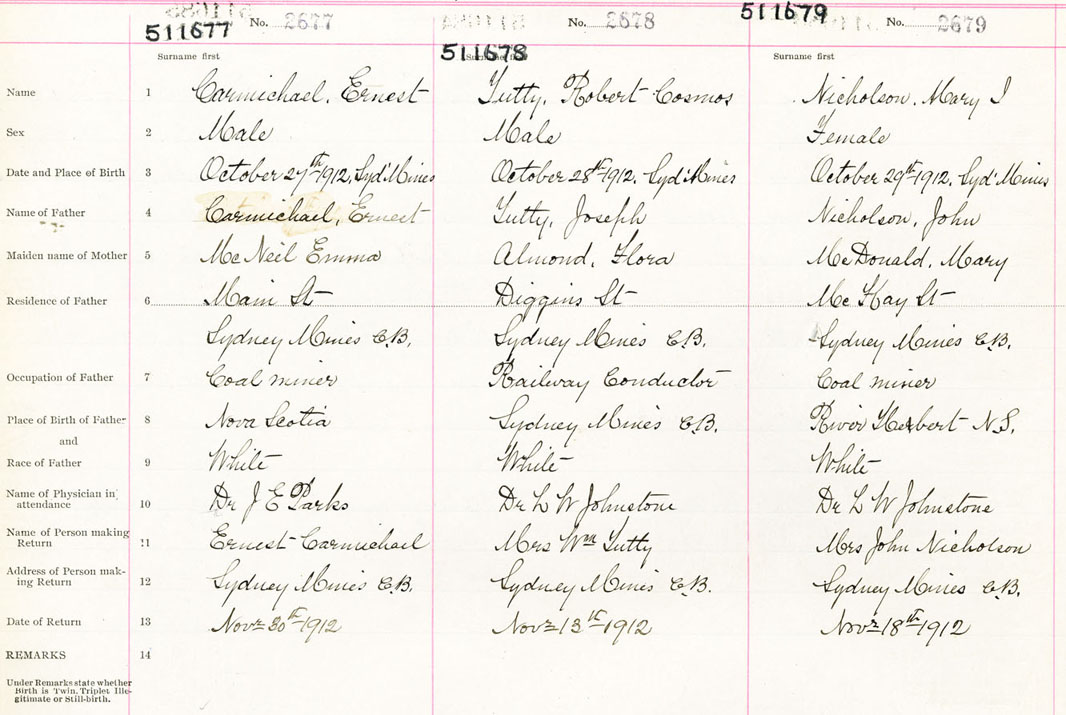 511677 No. 2677 No. 2678 511679 No. 2679
Surname first 511678 Surname first
Name 1 Carmichael, Ernest Tutty, Robert Cosmos Nicholson, Mary J
Sex 2 Male Male Female
Date and Place of Birth 3 October 27th 1912, Syd. Mines October 28th 1912. Syd. Mines October 29th 1912, Syd. Mines
Name of Father 4 Carmichael, Ernest Tutty, Joseph Nicholson, John
Maiden name of Mother 5 McNeil Emma Almond, Flora McDonald, Mary
Residence of Father 6 Main St Diggins St Mc Kay St
Sydney Mines C.B. Sydney Mines C.B. Sydney Mines C.B.
Occupation of Father 7 Coal miner Railway Conductor Coal miner
Place of Birth of Father 8 Nova Scotia Sydney Mines C.B. River Herbert N.S.
and
Race of Father 9 White White White
Name of Physician in attendance 10 Dr J E Parks Dr L W Johnstone Dr L W Johnstone
Name of Person making Return 11 Ernest Carmichael Mrs Wm Tutty Mrs John Nicholson
Address of Person making Return 12 Sydney Mines C.B. Sydney Mines C.B. Sydney Mines C.B.
Date of Return 13 Novr 30th 1912 Novr 13th 1912 Novr 18th 1912
REMARKS 14
Under Remarks state whether
Birth is Twin, Triplet Ille-
gitimate or Still-birth.